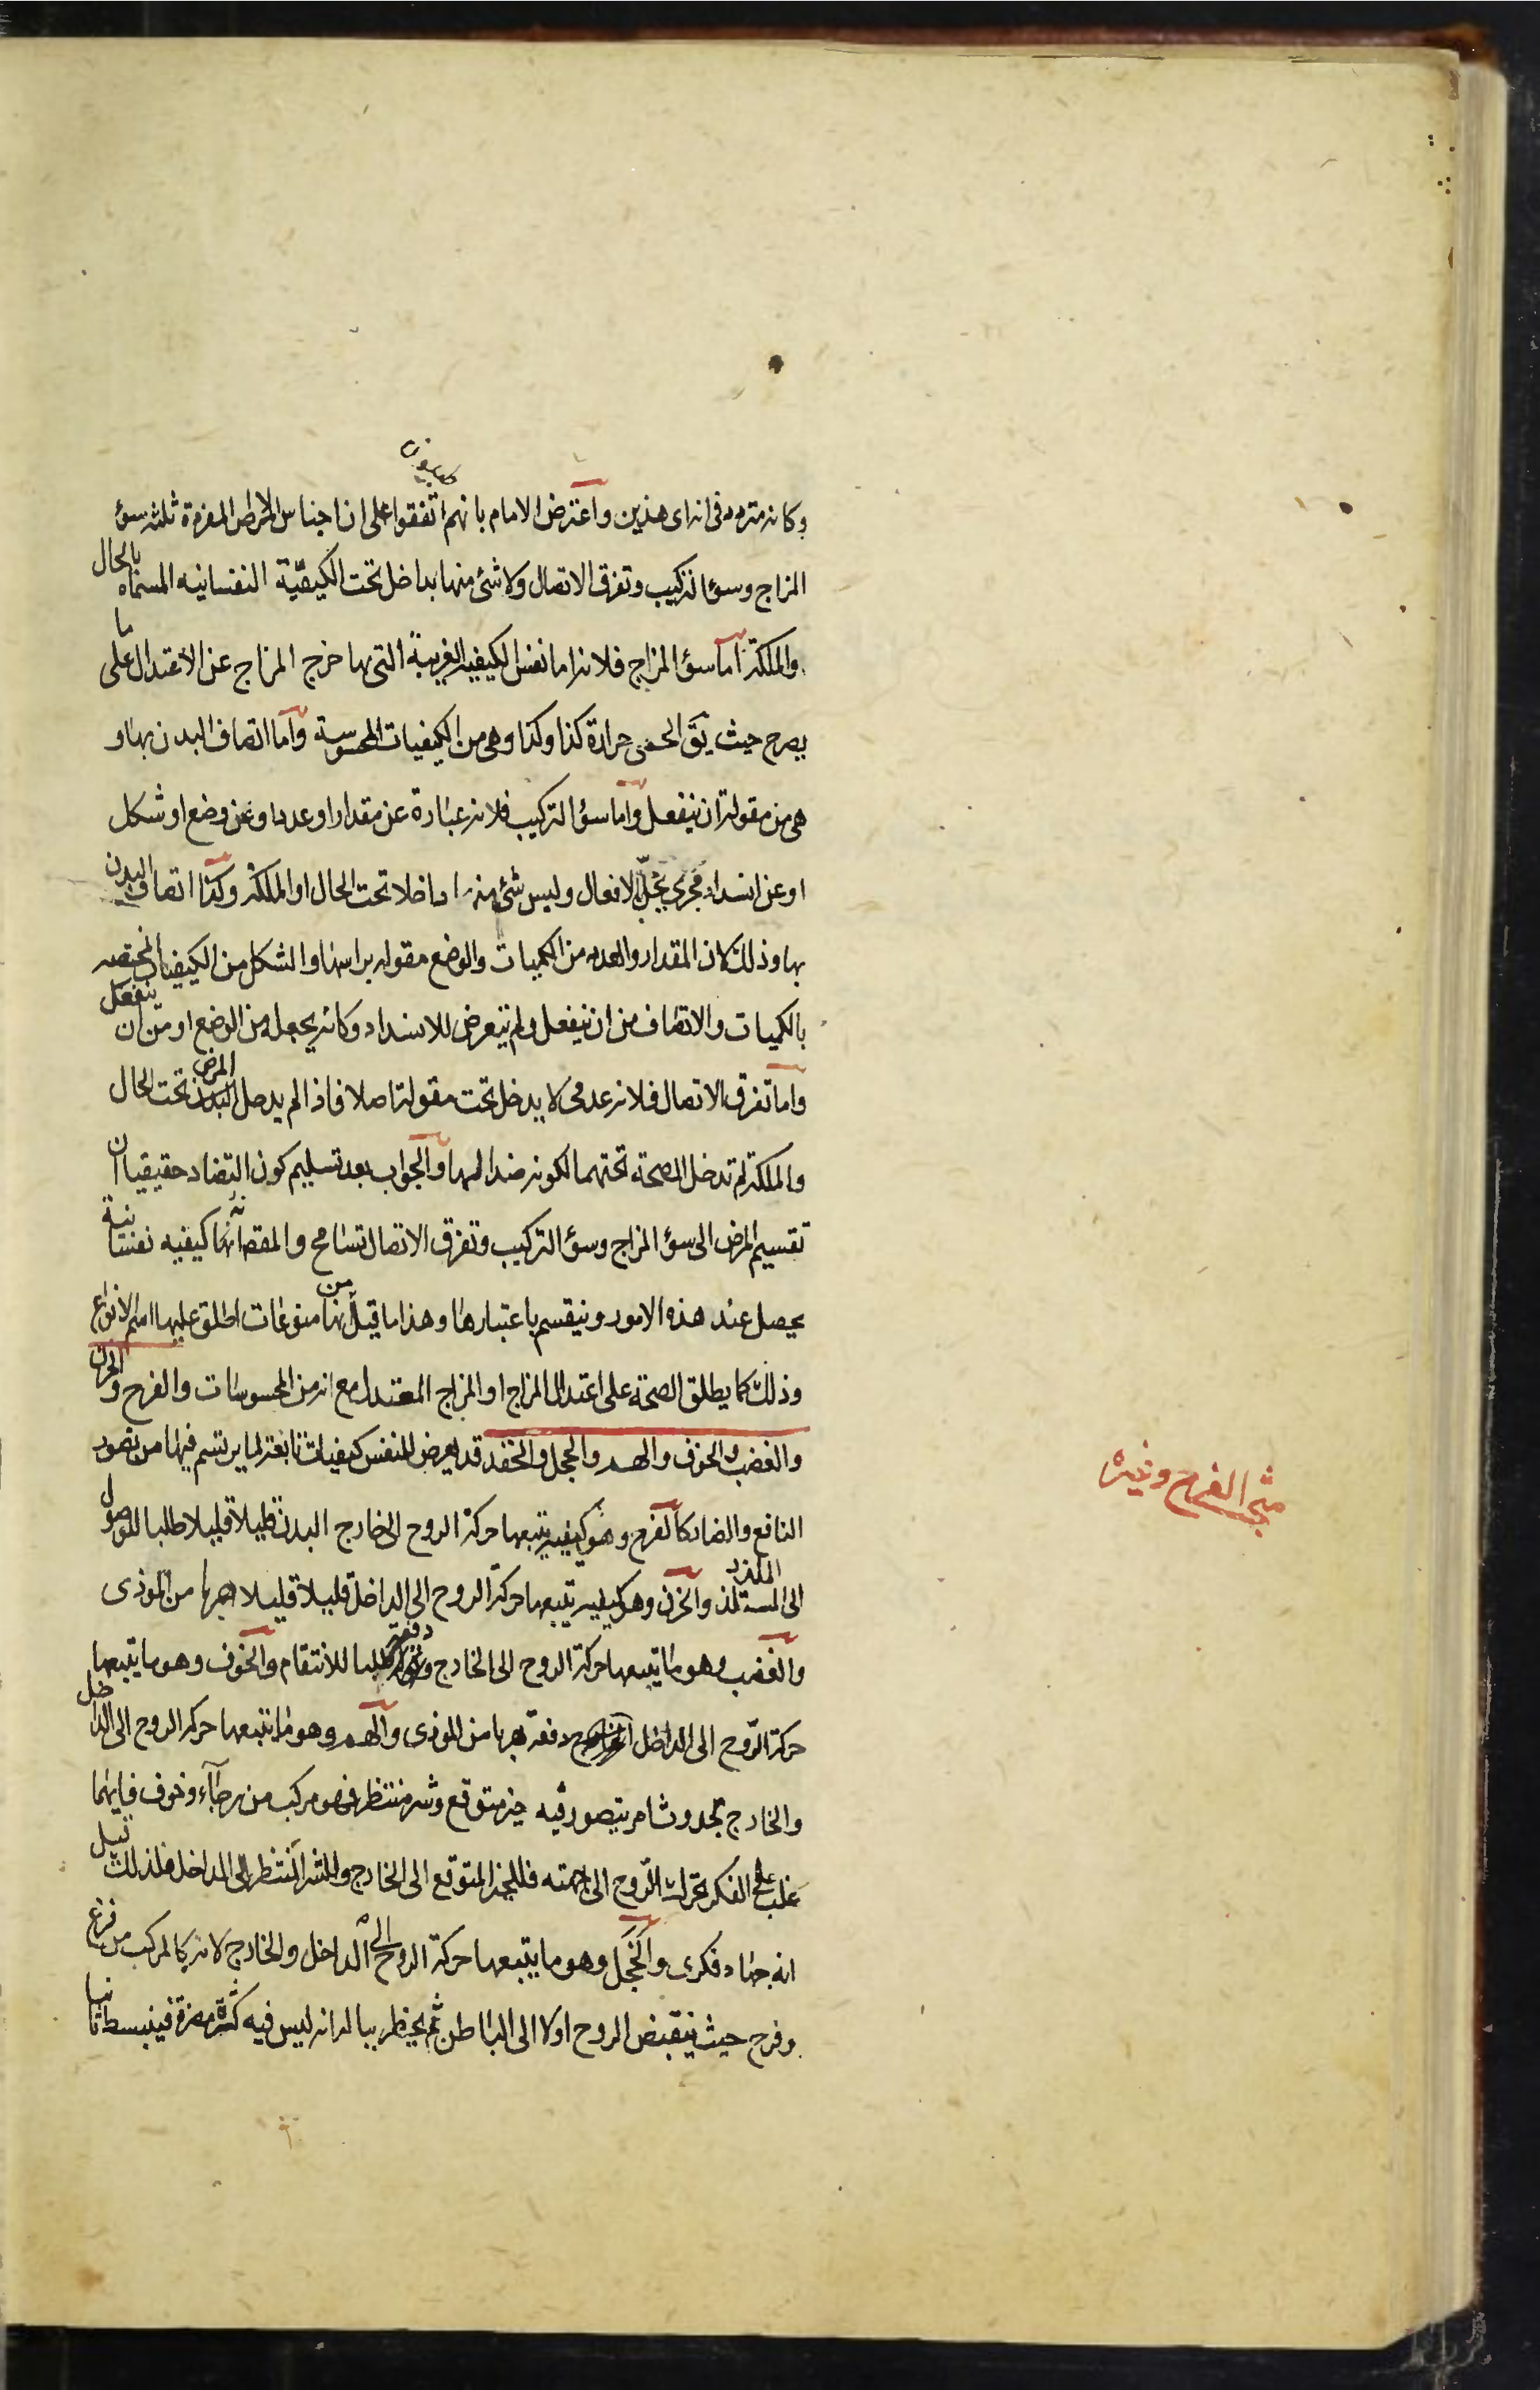 وكانه متردد فى انه اى هذين واعترض الامام بانهم اتفقوا على ان اجناس الامراض المفردة ثلثه سؤ
المزاج وسؤ التركيب وتفرق الاتصال ولا شئ منها بداخل تحت الكيفية النفسانيه المسماه بالحال
والملكة اما سؤ المزاج فلانه اما نفس الكيفيه الغريبة التى بها خرج المزاج عن الاعتدال على ما
يصرح حيث يق الحمى حرارة كذا وكذا وهى من الكيفيات المحسوسة واما اتصاف البدن بها و
هى من مقولة ان ينفعل واما سؤ التركيب فلانه عبارة عن مقدار او عدد او عن وضع او شكل
او عن انسداد مجرى يخل بالافعال وليس شئ منها داخلا تحت الحال او الملكة وكذا اتصاف البدن
بها وذلك لان المقدار والعدد من الكميات والوضع مقوله براسها والشكل من الكيفيات المختصه
بالكميات والاتصاف من ان ينفعل ولم يتعرض للانسداد وكانه يجعله من الوضع او من ان ينفعل
واما تفرق الاتصال فلانه عدمى لا يدخل تحت مقولة اصلا فاذا لم يدخل المرض تحت الحال
والملكة لم تدخل الصحة تحتهما لكونه ضدا لها والجواب بعد تسليم كون التضاد حقيقيا ان
تقسيم المرض الى سؤ المزاج وسؤ التركيب وتفرق الاتصال تسامح والمقصود انها كيفيه نفسانية
يحصل عند هذه الامور وينقسم باعتبارها وهذا ما قيل من انها منوعات اطلق عليها اسم الانواع
وذلك كما يطلق الصحة على اعتدال المزاج او المزاج المعتدل مع انه من المحسوسات والفرح والحزن
والغضب والخوف والهم والخجل والحقد قد يعرض للنفس كيفيات تابعة لما يرتسم فيها من تصور
النافع والضار كالفرح وهو كيفيه يتبعها حركة الروح الى خارج البدن قليلا قليلا طلبا للوصول
الى المستلذ الملذ والحزن وهو كيفيه يتبعها حركة الروح الى الداخل قليلا قليلا هربا من الموذى
والغضب وهو ما يتبعها حركة الروح الى الخارج دفعة طلبا للانتقام والخوف وهو ما يتبعها
حركة الروح الى الداخل دفعة هربا من الموذى والهم وهو ما يتبعها حركة الروح الى الداخل
والخارج لحدوث امر يتصور فيه خير متوقع وشر منتظر فهو مركب من رجاء وخوف فايهما
غلب على الفكر تحركت الروح الى جهته فللخير المتوقع الى الخارج وللشر المنتظر الى الداخل فلذلك قيل
انه جهاد فكرى والخجل وهو ما يتبعها حركة الروح الى الداخل والخارج لانه كالمركب من فزع
وفرح حيث ينقبض الروح اولا الى الباطن ثم يخطر بباله انه ليس فيه كثير مضرة فينبسط ثانيا
مثل الفرح وغيره